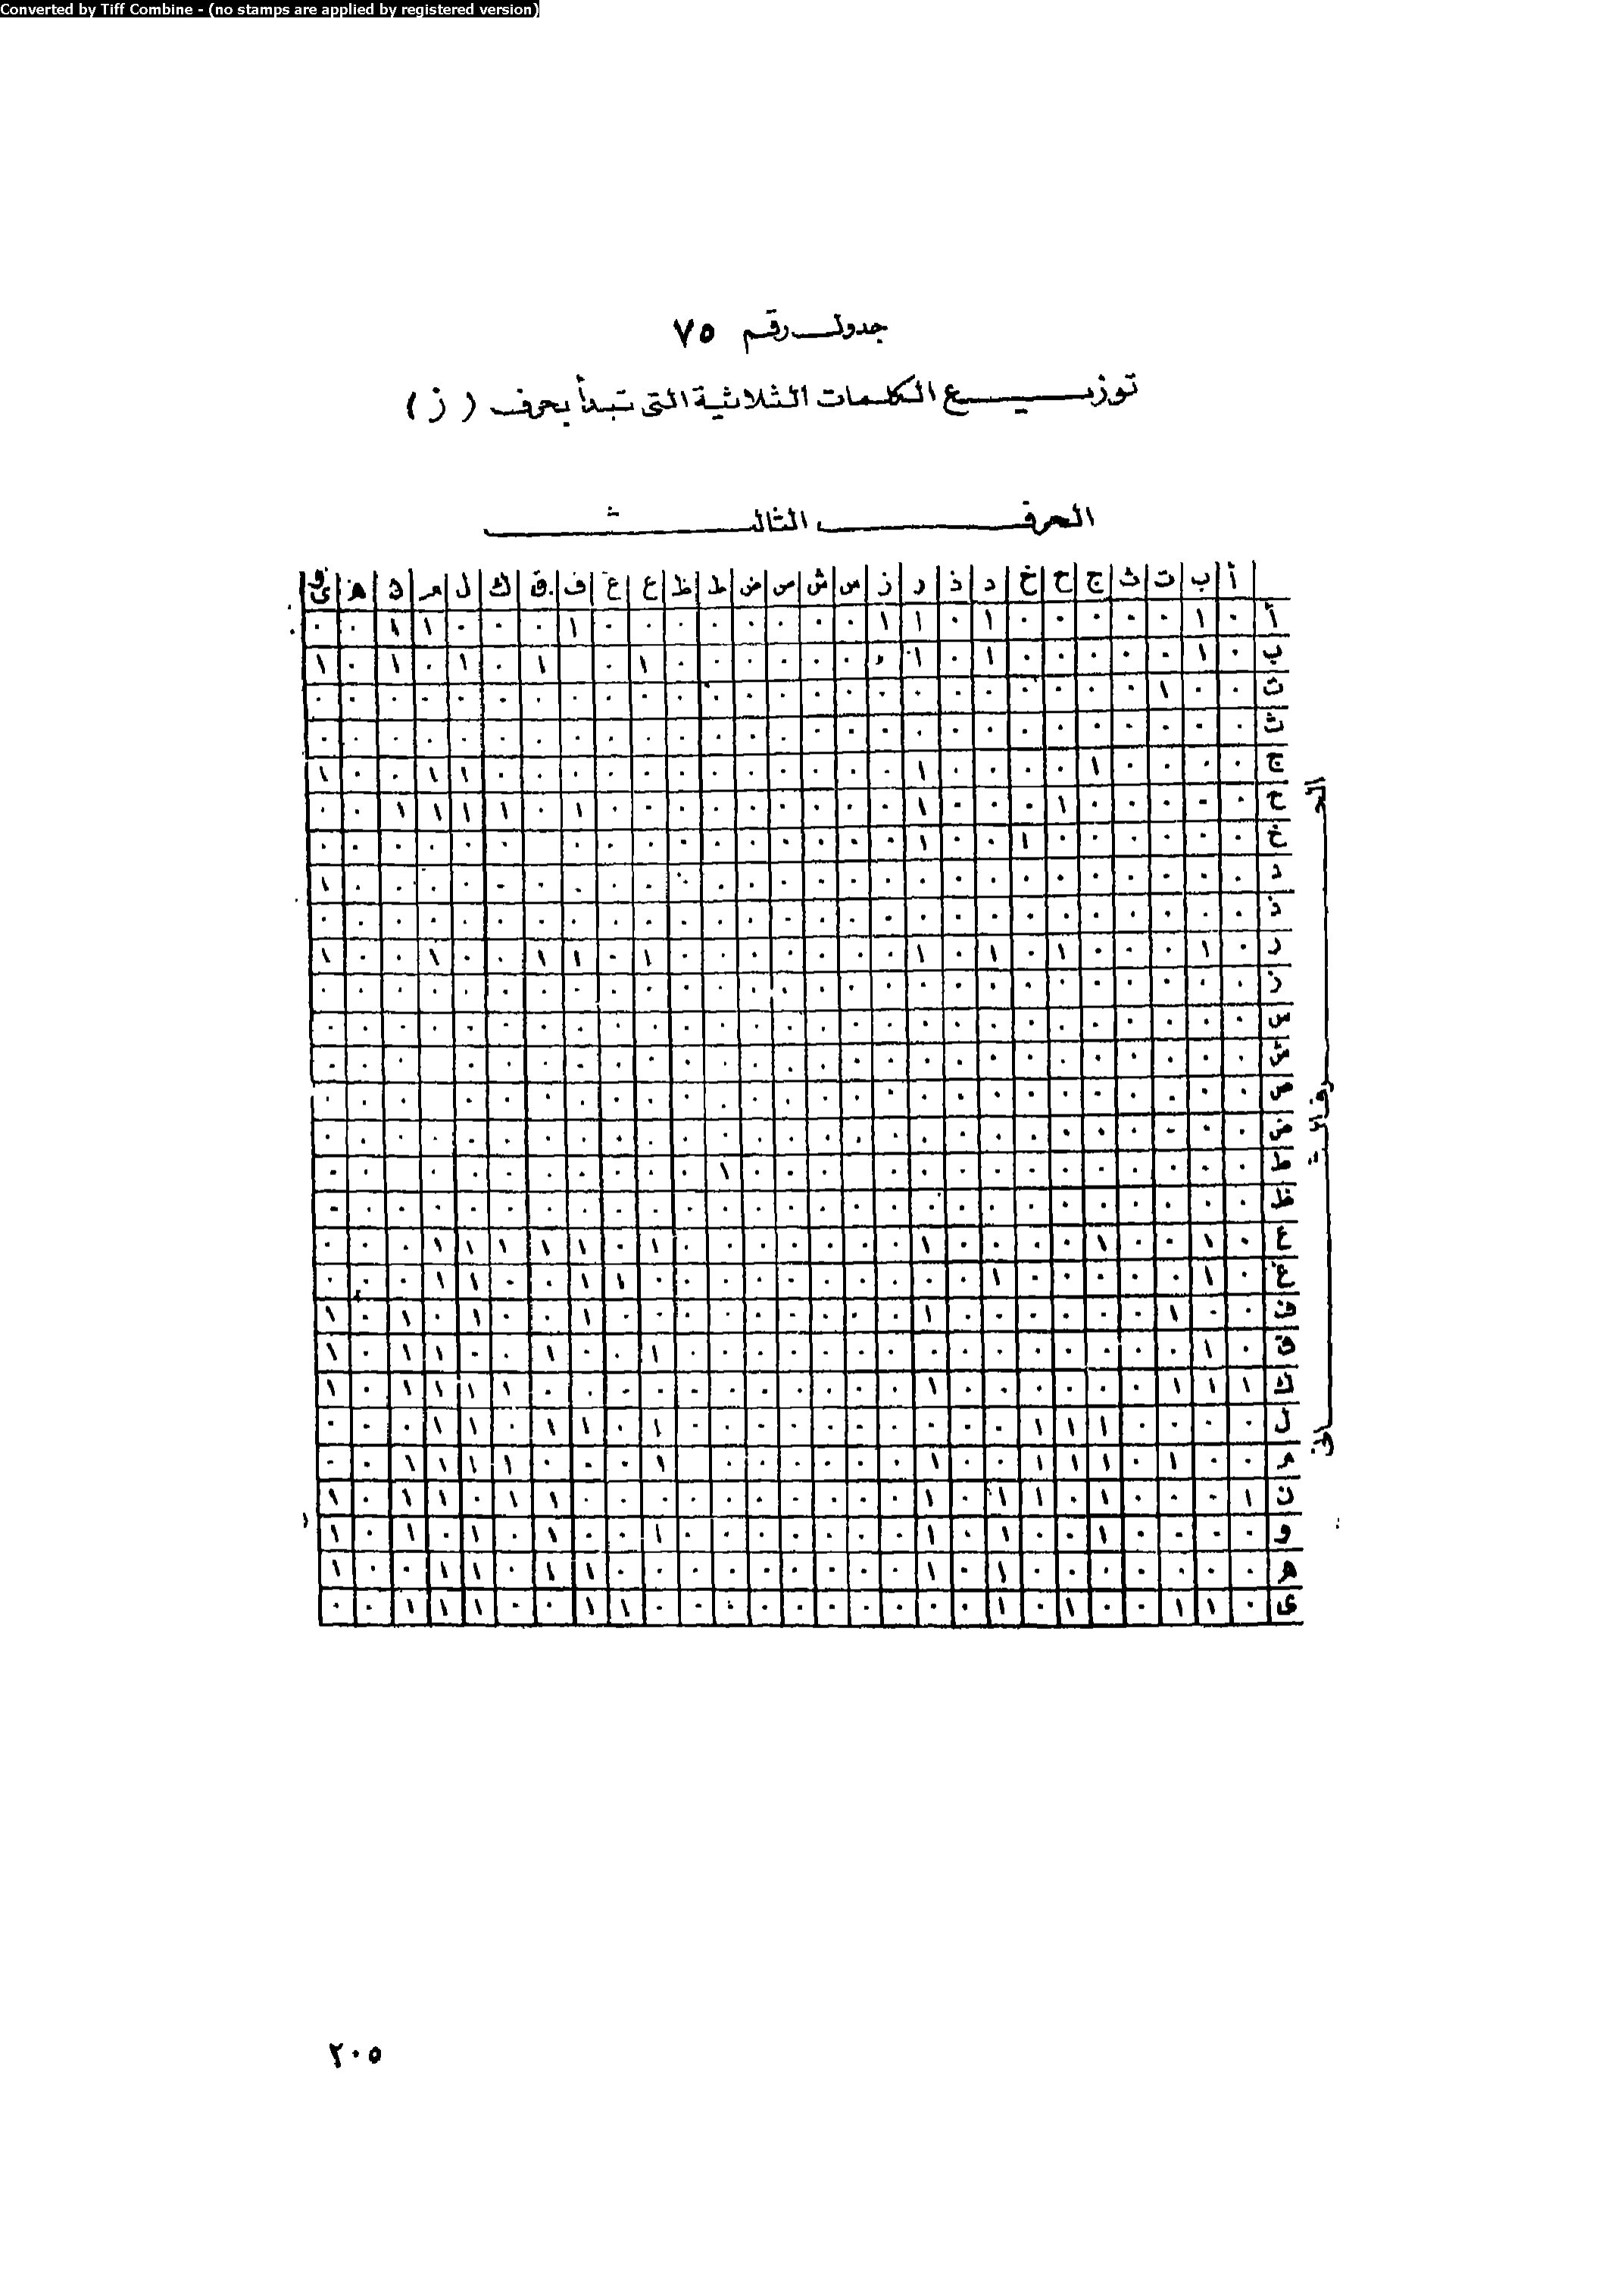 Converted by Tiff Combine - (no stamps are applied by registered version)
جدول رقم ٧٥
توزيع الكلمات الثلاثية التى تبدأ بحرف (ز)
الحرف الثالث
أ ب ت ث ج ح خ د ذ ر ز س ش ص ض ط ظ ع غ ف ق ك ل م ن هـ وى
أ ٠ ١ ٠ ٠ ٠ ٠ ٠ ١ ٠ ١ ١ ٠ ٠ ٠ ٠ ٠ ٠ ٠ ٠ ١ ٠ ٠ ٠ ١ ١ ٠ ٠
ب ٠ ١ ٠ ٠ ٠ ٠ ٠ ١ ٠ ١ ٠ ٠ ٠ ٠ ٠ ٠ ٠ ١ ٠ ١ ٠ ١ ٠ ١ ٠ ١
ت ٠ ٠ ١ ٠ ٠ ٠ ٠ ٠ ٠ ٠ ٠ ٠ ٠ ٠ ٠ ٠ ٠ ٠ ٠ ٠ ٠ ٠ ٠ ٠ ٠ ٠ ٠
ث ٠ ٠ ٠ ٠ ٠ ٠ ٠ ٠ ٠ ٠ ٠ ٠ ٠ ٠ ٠ ٠ ٠ ٠ ٠ ٠ ٠ ٠ ٠ ٠ ٠ ٠ ٠
ج ٠ ٠ ٠ ٠ ١ ٠ ٠ ٠ ٠ ١ ٠ ٠ ٠ ٠ ٠ ٠ ٠ ٠ ٠ ٠ ٠ ٠ ١ ١ ٠ ٠ ١
ح ٠ ٠ ٠ ٠ ٠ ١ ٠ ٠ ٠ ١ ٠ ٠ ٠ ٠ ٠ ٠ ٠ ٠ ٠ ١ ٠ ١ ١ ١ ١ ٠ ٠
خ ٠ ٠ ٠ ٠ ٠ ٠ ١ ٠ ٠ ١ ٠ ٠ ٠ ٠ ٠ ٠ ٠ ٠ ٠ ٠ ٠ ٠ ٠ ٠ ٠ ٠
د ٠ ٠ ٠ ٠ ٠ ٠ ٠ ٠ ٠ ٠ ٠ ٠ ٠ ٠ ٠ ٠ ٠ ٠ ٠ ٠ ٠ ٠ ٠ ٠ ٠ ٠ ١
ذ ٠ ٠ ٠ ٠ ٠ ٠ ٠ ٠ ٠ ٠ ٠ ٠ ٠ ٠ ٠ ٠ ٠ ٠ ٠ ٠ ٠ ٠ ٠ ٠ ٠ ٠ ٠
ر ٠ ١ ٠ ٠ ٠ ١ ٠ ١ ٠ ١ ٠ ٠ ٠ ٠ ٠ ٠ ٠ ١ ٠ ١ ١ ٠ ٠ ١ ٠ ٠ ١
ز ٠ ٠ ٠ ٠ ٠ ٠ ٠ ٠ ٠ ٠ ٠ ٠ ٠ ٠ ٠ ٠ ٠ ٠ ٠ ٠ ٠ ٠ ٠ ٠ ٠ ٠ ٠
س ٠ ٠ ٠ ٠ ٠ ٠ ٠ ٠ ٠ ٠ ٠ ٠ ٠ ٠ ٠ ٠ ٠ ٠ ٠ ٠ ٠ ٠ ٠ ٠ ٠ ٠ ٠
ش ٠ ٠ ٠ ٠ ٠ ٠ ٠ ٠ ٠ ٠ ٠ ٠ ٠ ٠ ٠ ٠ ٠ ٠ ٠ ٠ ٠ ٠ ٠ ٠ ٠ ٠
ص ٠ ٠ ٠ ٠ ٠ ٠ ٠ ٠ ٠ ٠ ٠ ٠ ٠ ٠ ٠ ٠ ٠ ٠ ٠ ٠ ٠ ٠ ٠ ٠ ٠ ٠
ض ٠ ٠ ٠ ٠ ٠ ٠ ٠ ٠ ٠ ٠ ٠ ٠ ٠ ٠ ٠ ٠ ٠ ٠ ٠ ٠ ٠ ٠ ٠ ٠ ٠ ٠ ٠
ط ٠ ٠ ٠ ٠ ٠ ٠ ٠ ٠ ٠ ٠ ٠ ٠ ٠ ٠ ١ ٠ ٠ ٠ ٠ ٠ ٠ ٠ ٠ ٠ ٠
ظ ٠ ٠ ٠ ٠ ٠ ٠ ٠ ٠ ٠ ٠ ٠ ٠ ٠ ٠ ٠ ٠ ٠ ٠ ٠ ٠ ٠ ٠ ٠ ٠ ٠ ٠ ٠
ع ٠ ١ ٠ ٠ ١ ٠ ٠ ٠ ٠ ١ ٠ ٠ ٠ ٠ ٠ ٠ ٠ ١ ٠ ١ ١ ١ ١ ١ ٠ ٠ ٠
غ ٠ ١ ٠ ٠ ٠ ٠ ٠ ١ ٠ ٠ ٠ ٠ ٠ ٠ ٠ ٠ ٠ ٠ ١ ١ ٠ ٠ ١ ١ ٠ ٠ ٠
ف ٠ ٠ ١ ٠ ٠ ٠ ٠ ٠ ٠ ١ ٠ ٠ ٠ ٠ ٠ ٠ ٠ ٠ ٠ ١ ٠ ٠ ١ ٠ ١ ٠ ١
ق ٠ ١ ٠ ٠ ٠ ٠ ٠ ٠ ٠ ٠ ٠ ٠ ٠ ٠ ٠ ٠ ٠ ١ ٠ ٠ ١ ٠ ٠ ١ ١ ٠ ١
ك ١ ١ ١ ٠ ٠ ٠ ٠ ٠ ٠ ١ ٠ ٠ ٠ ٠ ٠ ٠ ٠ ٠ ٠ ٠ ٠ ١ ١ ١ ١ ٠ ١
ل ٠ ٠ ٠ ٠ ١ ١ ١ ٠ ٠ ٠ ٠ ٠ ٠ ٠ ٠ ٠ ٠ ١ ٠ ١ ١ ٠ ١ ١ ٠ ٠ ٠
م ٠ ٠ ١ ٠ ١ ١ ١ ٠ ٠ ١ ٠ ٠ ٠ ٠ ٠ ٠ ١ ٠ ٠ ٠ ١ ١ ١ ١ ٠ ٠
ن ١ ٠ ٠ ٠ ١ ٠ ١ ١ ٠ ١ ٠ ٠ ٠ ٠ ٠ ٠ ٠ ٠ ٠ ٠ ١ ١ ٠ ١ ١ ٠ ١
و ٠ ٠ ٠ ٠ ١ ٠ ٠ ١ ٠ ١ ٠ ٠ ٠ ٠ ٠ ٠ ٠ ١ ٠ ٠ ١ ٠ ١ ٠ ١ ٠ ١
هـ ٠ ٠ ٠ ٠ ٠ ٠ ٠ ١ ٠ ١ ٠ ٠ ٠ ٠ ٠ ٠ ٠ ٠ ٠ ١ ١ ٠ ١ ١ ٠ ٠ ١
ى ٠ ١ ١ ٠ ٠ ١ ٠ ١ ٠ ٠ ٠ ٠ ٠ ٠ ٠ ٠ ٠ ٠ ١ ١ ٠ ٠ ١ ١ ١ ٠ ٠
الحرف الثانى
٢٠٥